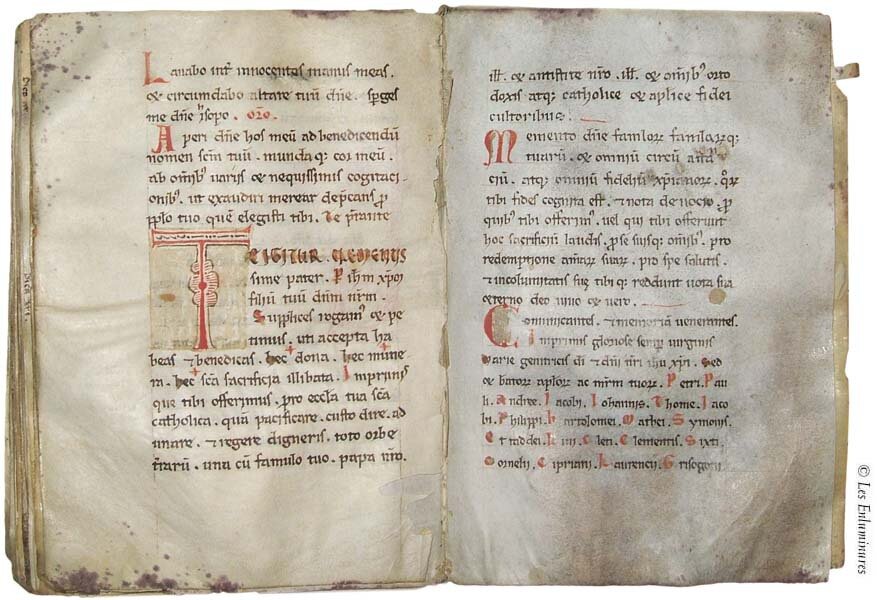 Lauabo int innocentes manus meas.
& circumdabo altare tuū dn̄e. Sp̄ges
me dn̄e hysopo. or̄o.
Aperi dn̄e hos meū ad benedicendū
nomen scm̄ tuū. munda q; cor meū.
ab omīb' uariis & nequissimis cogitaci-
onib'. ut exaudiri merear dep̄cans ꝑ
pplo tuo quē elegisti tibi. Te p̄stante
TE IGITUR CLEMENTIS
sime pater. P ihm̄ xp̄m
filiū tuū dnm̄ nr̄m.
Supplices rogam' & pe
timus. uti accepta ha
beas & benedicas. hec dona. hec mune
ra. hec scā sacrificia illibata. Inprimis
que tibi offerimus. pro eccl̄a tua scā
catholica. quā pacificare. custodire. ad
unare. & regere digneris. toto orbe
t̄rarū. una cū famulo tuo. papa nr̄o.
ill. & antistite nr̄o. ill. & om̄ib' orto
doxis atq; catholice & ap̄lice fidei
cultorib'.
Memento dn̄e famulor famularq;
tuarū & omniū circū
ciū. atq; omniū fideliū xp̄ianor. qr̄
tibi fides cognita est. & nota deuocio. ꝑ
quib' tibi offerim'. uel qui tibi offerunt
hoc sacrificiū laudis. ꝑ se suisq; om̄ib'. pro
redemptione animar suar. pro spe salutis.
& incolumitatis sue tibi q; reddunt uota sua
eterno deo uiuo & uero.
Comunicantes. & memoriā uenerantes.
Inprimis gloriose semp̄ uirginis
Marie genitricis di & dn̄i nr̄i ihu xp̄i. Sed
& bator ap̄lor ac mr̄m tuor. Petri. Pau
li. Andree. Iacobi. Iohannis. Thome. Iaco
bi. Philippi. Bartolomei. Mathei. Symonis.
Et taddei. Lini. Cleti. Clementis. Sixti.
Cornelii. Cipriani. Laurencii. Grisogoni.
© Les Enluminures